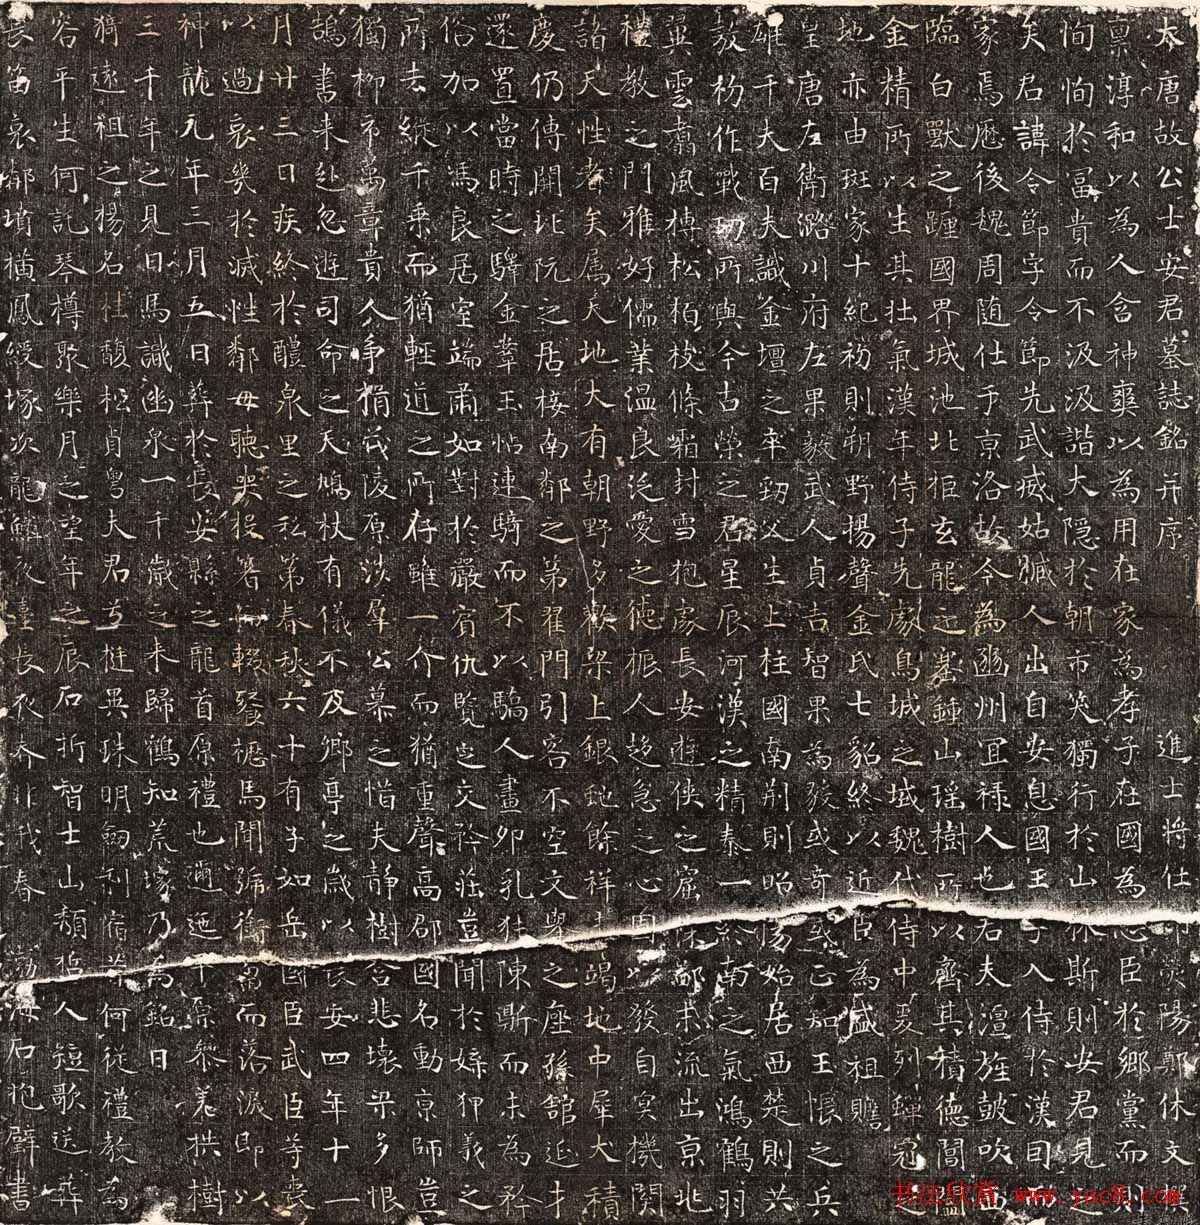 大唐故公士安君墓誌銘并序 進士將仕郎滎陽鄭休文撰
稟淳和以為人含神爽以為用在家為孝子在國為忠臣於鄉黨而則
恂恂於富貴而不汲汲諧大隱於朝市笑獨行於山林斯則安君見之
矣君諱令節字令節先武威姑臧人出自安息國王子入侍於漢因而
家焉歷後魏周隨仕于京洛故今為豳州宜祿人也若夫澶旌皷吹西
臨白獸之躔國界城池北拒玄龍之塞鍾山瑤樹所以齊其積德閶闔
金精所以生其壯氣漢年侍子先處烏城之域魏代侍中爰列蟬冠之
地亦由班家十紀初則朔野揚聲金氏七貂終以近臣為盛祖贍
皇唐左衛潞川府左果毅武人貞吉智果為毅或奇或正知王帳之兵
雄千夫百夫識金壇之卒劾父生上柱國南荊則昭陽始居西楚則共
敖初作戰功所與今古榮之君星辰河漢之精泰一終南之氣鴻鶴羽
翼雲翥風摶松栢枝條霜封雪抱處長安遊俠之窟深鄙末流出京兆
禮教之門雅好儒業溫良泛愛之德振人趍急之心固以發自冥機關
諸天性者矣属天地大有朝野多歡梁上銀虵餘祥未竭地中犀犬積
慶仍傳開北阮之居接南鄰之第翟門引客不空文舉之座孫館延才
還置當時之驛金鞌玉怗連騎而不以驕人畫卯乳肫陳斯而未為矜
俗加以馮良居室端肅如對於嚴賓仇覽定交矜莊豈聞於媟狎義之
所去縱千乘而猶輕道之所存雖一介而猶重聲高郡國名動京師豈
獨柳市萬章貴人爭揖茂陵原涉群公慕之惜夫靜樹含悲壞梁多恨
鵠書來赴忽遊司命之天鳩杖有儀不及鄉亭之歲以長安四年十一
月廿三日疾終於醴泉里之私第春秋六十有子如岳國臣武臣等喪
以過哀幾於滅性鄰母聽哭投箸而輟飡櫪馬聞號銜芻而落淚即以
神龍元年三月五日葬於長安縣之龍首原禮也邐迤平原參差拱樹
三千年之見日馬識幽泉一千歲之來歸鶴知荒塚乃為銘曰
猗遠祖之揚名桂馥松貞粵夫君兮挺異珠明劒利宿昔何從禮教為
容平生何託琴樽聚樂月之望年之辰石折智士山頹哲人短歌送葬
長笛哀鄰墳橫鳳綬塚次龍鱗夜臺長夜兮非我春 渤海石抱璧書
书法欣赏 www.yac8.com